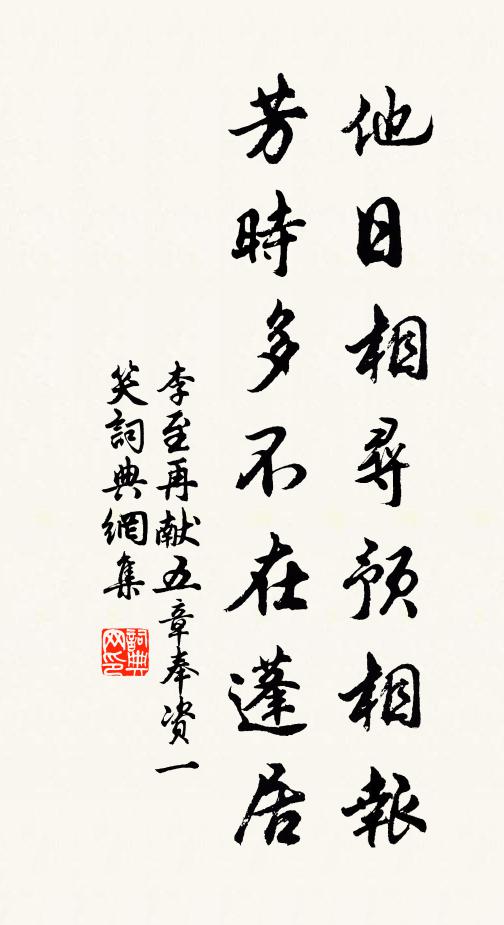 他日相尋預相報
芳時多不在蓬居
李至再献五章奉资一
笑詞典網集
詞典网印